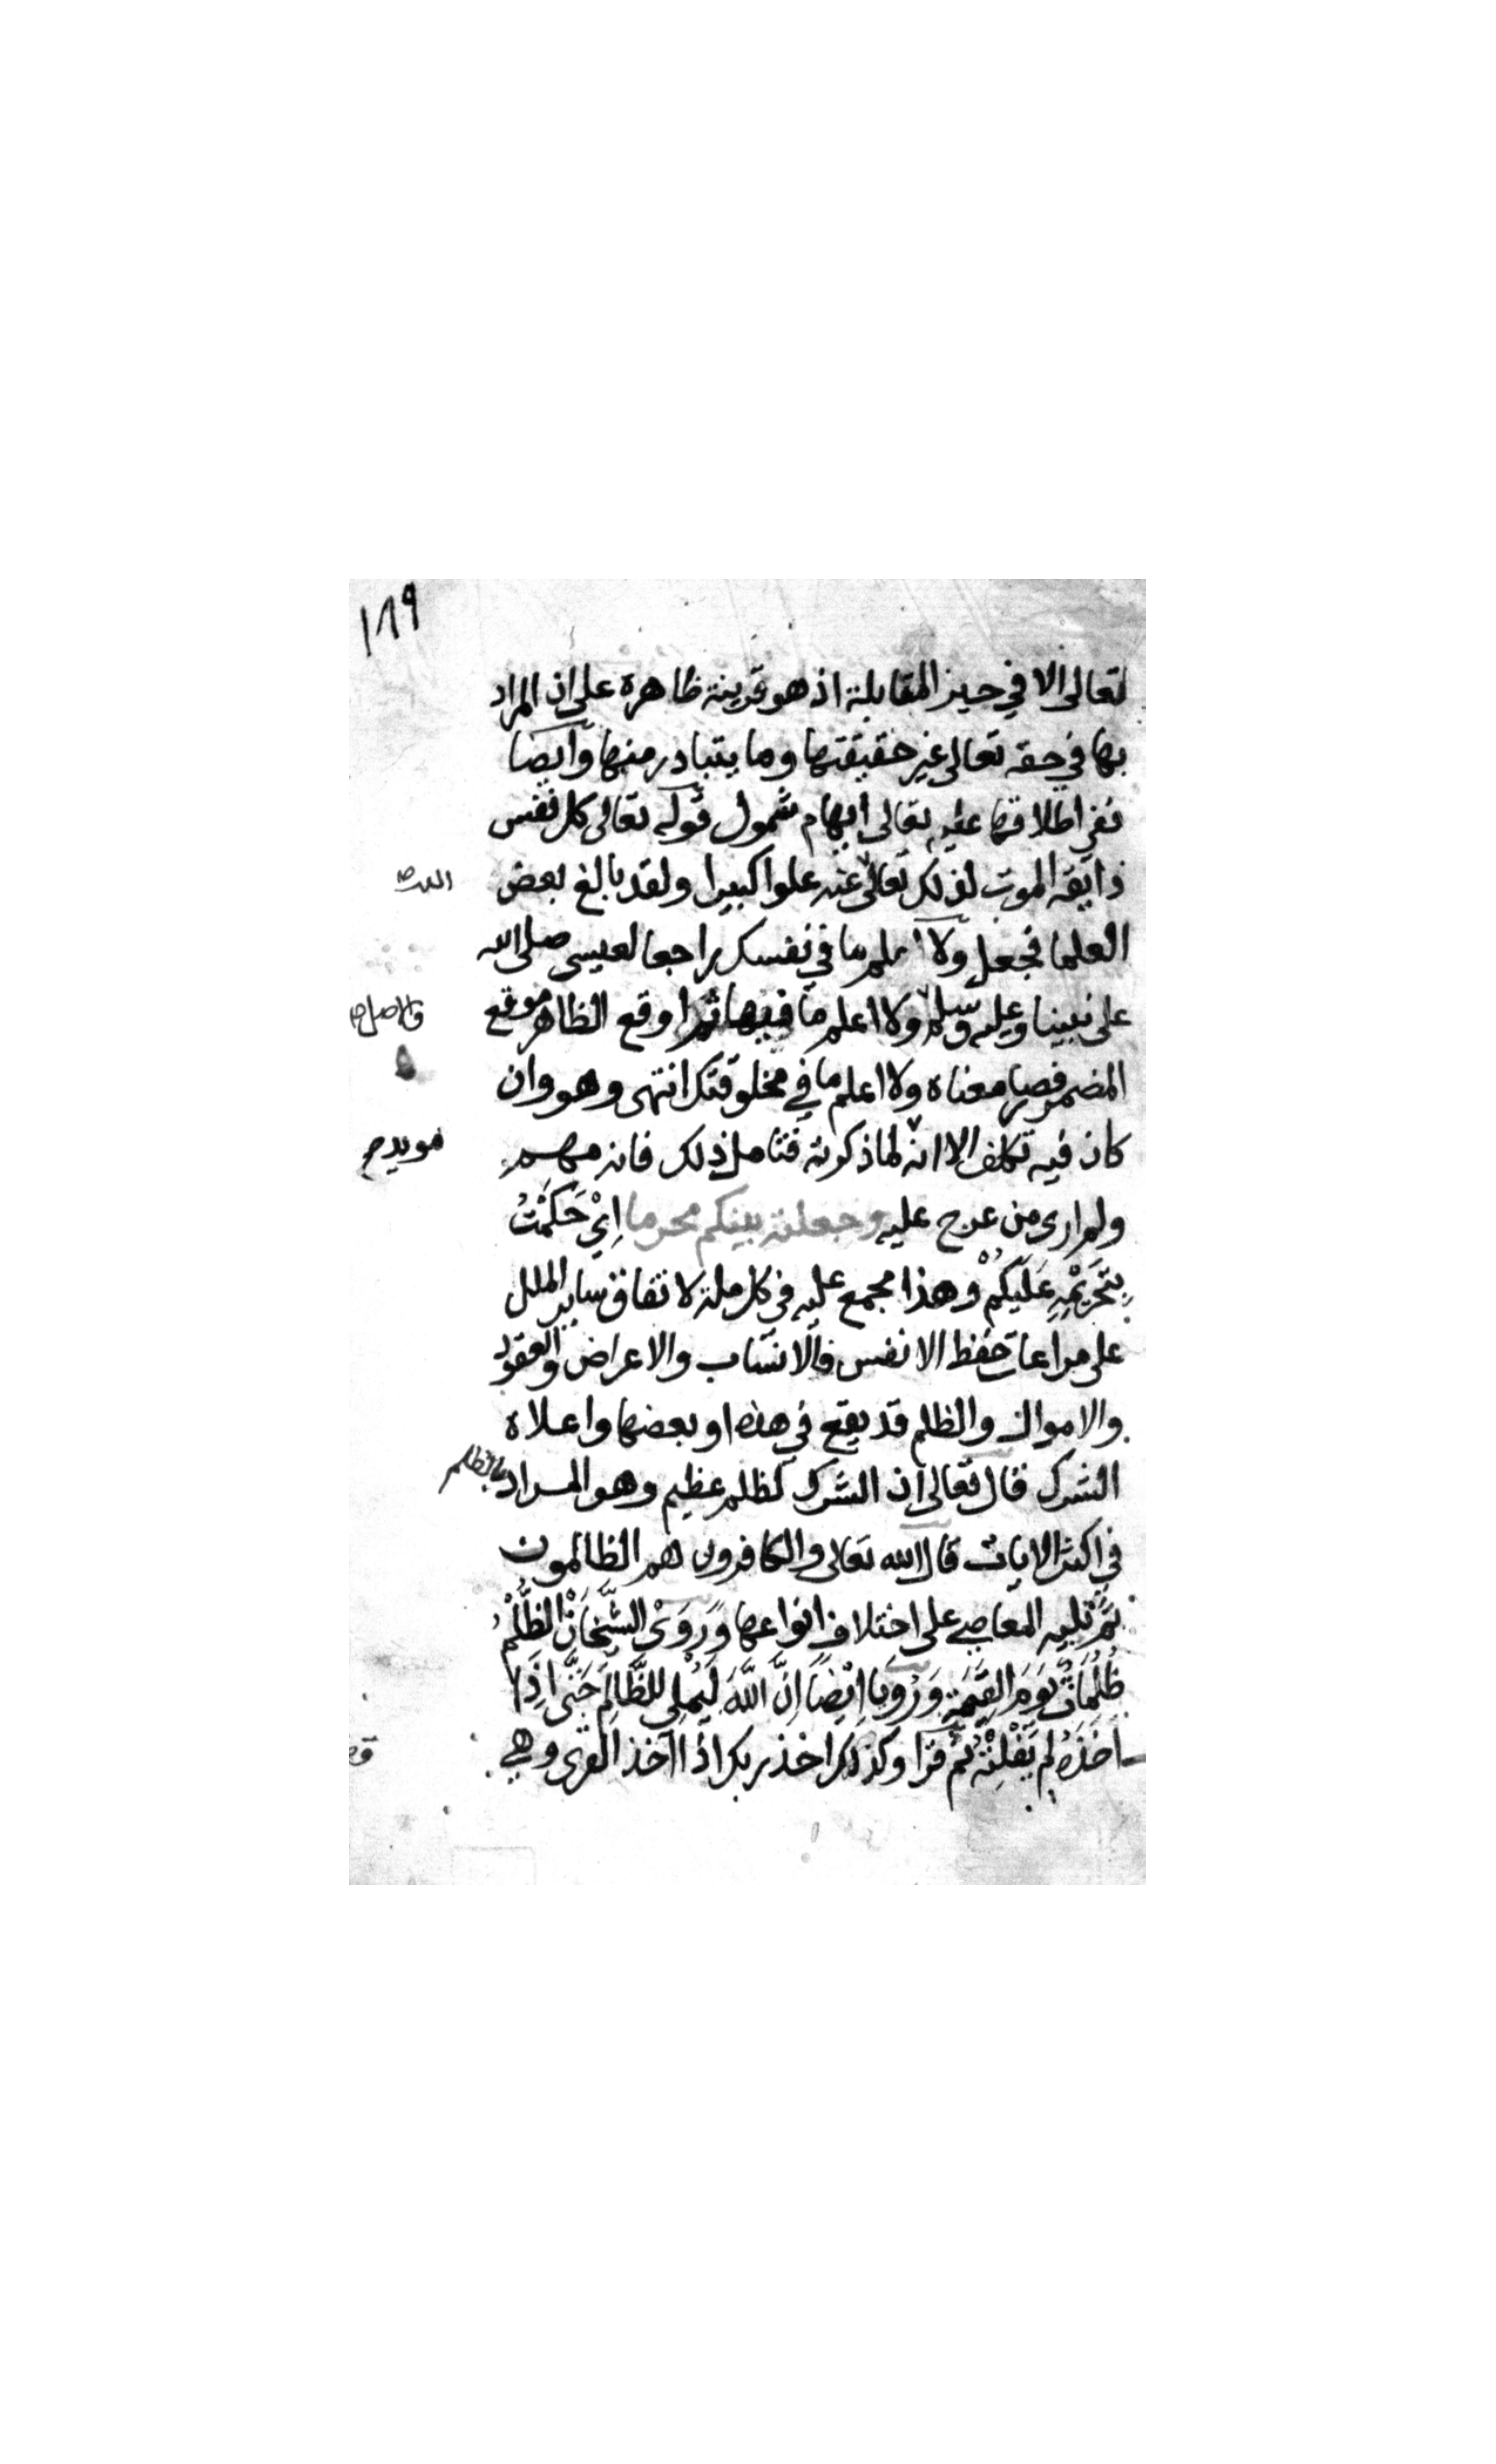 ١٨٩
لتعالى الا في حيز المقابلة اذ هو قرينة ظاهرة على ان المراد
بها في حقه تعالى غير حقيقتها وما يتبادر منها وايضا
نفي اطلاقها عليه تعالى ايهام شمول قوله تعالى كل نفس
ذايقة الموت لذلك تعالى عنه علوا كبيرا ولقد بالغ بعض
العلما فجعل ولا اعلم ما في نفسك راجعا لعيسى صلى الله
على نبينا وعليه وسلم ولا اعلم ما فيها ثم اوقع الظاهر موقع
المضمر فصار معناه ولا اعلم ما في مخلوقتك انتهى وهو وان
كان فيه تكلف الا انه لما ذكرته فتامل ذلك فانه مهم
مويد
ولم ار من عرج عليه وجعلته بينكم محرما اِيْ حَكَمْتُ
بِتَحْرِيْمِهِ عَلَيْكُمْ وهذا مجمع عليه في كل ملة لاتفاق ساير الملل
على مراعات حفظ الانفس فالانساب والاعراض والعقول
والاموال والظلم قد يقع في هذه او بعضها واعلاه
الشرك قال تعالى ان الشرك لظلم عظيم وهو المراد بالظلم
في اكثر الايات قال الله تعالى والكافرون هم الظالمون
ثم تليه المعاصي على اختلاف انواعها وَرَوَى الشَّيْخَانْ الظُّلْمُ
ظُلُمَاتٌ يَوْمَ القِيَمَةِ وَرَوَيَا اَيْضَا اِنَّ اللَّهَ لَيُمْلِي لِلظَّالِمِ حَتَّى اِذَا
اَخَذَهُ لم يَفْلِتْهُ ثم قرا وكذلك اخذ ربك اذا اخذ القرى وهي